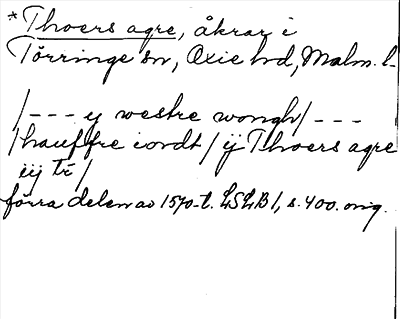 *Thoers agre, åkrar i
Törringe sn, Oxie hd, Malm. l.
/--- y westre wongh/---
/hauffre iordt/ ÿ Thoers agre
iiij tr/
förra delen av 1570-t. LSLB 1, s. 400. orig.